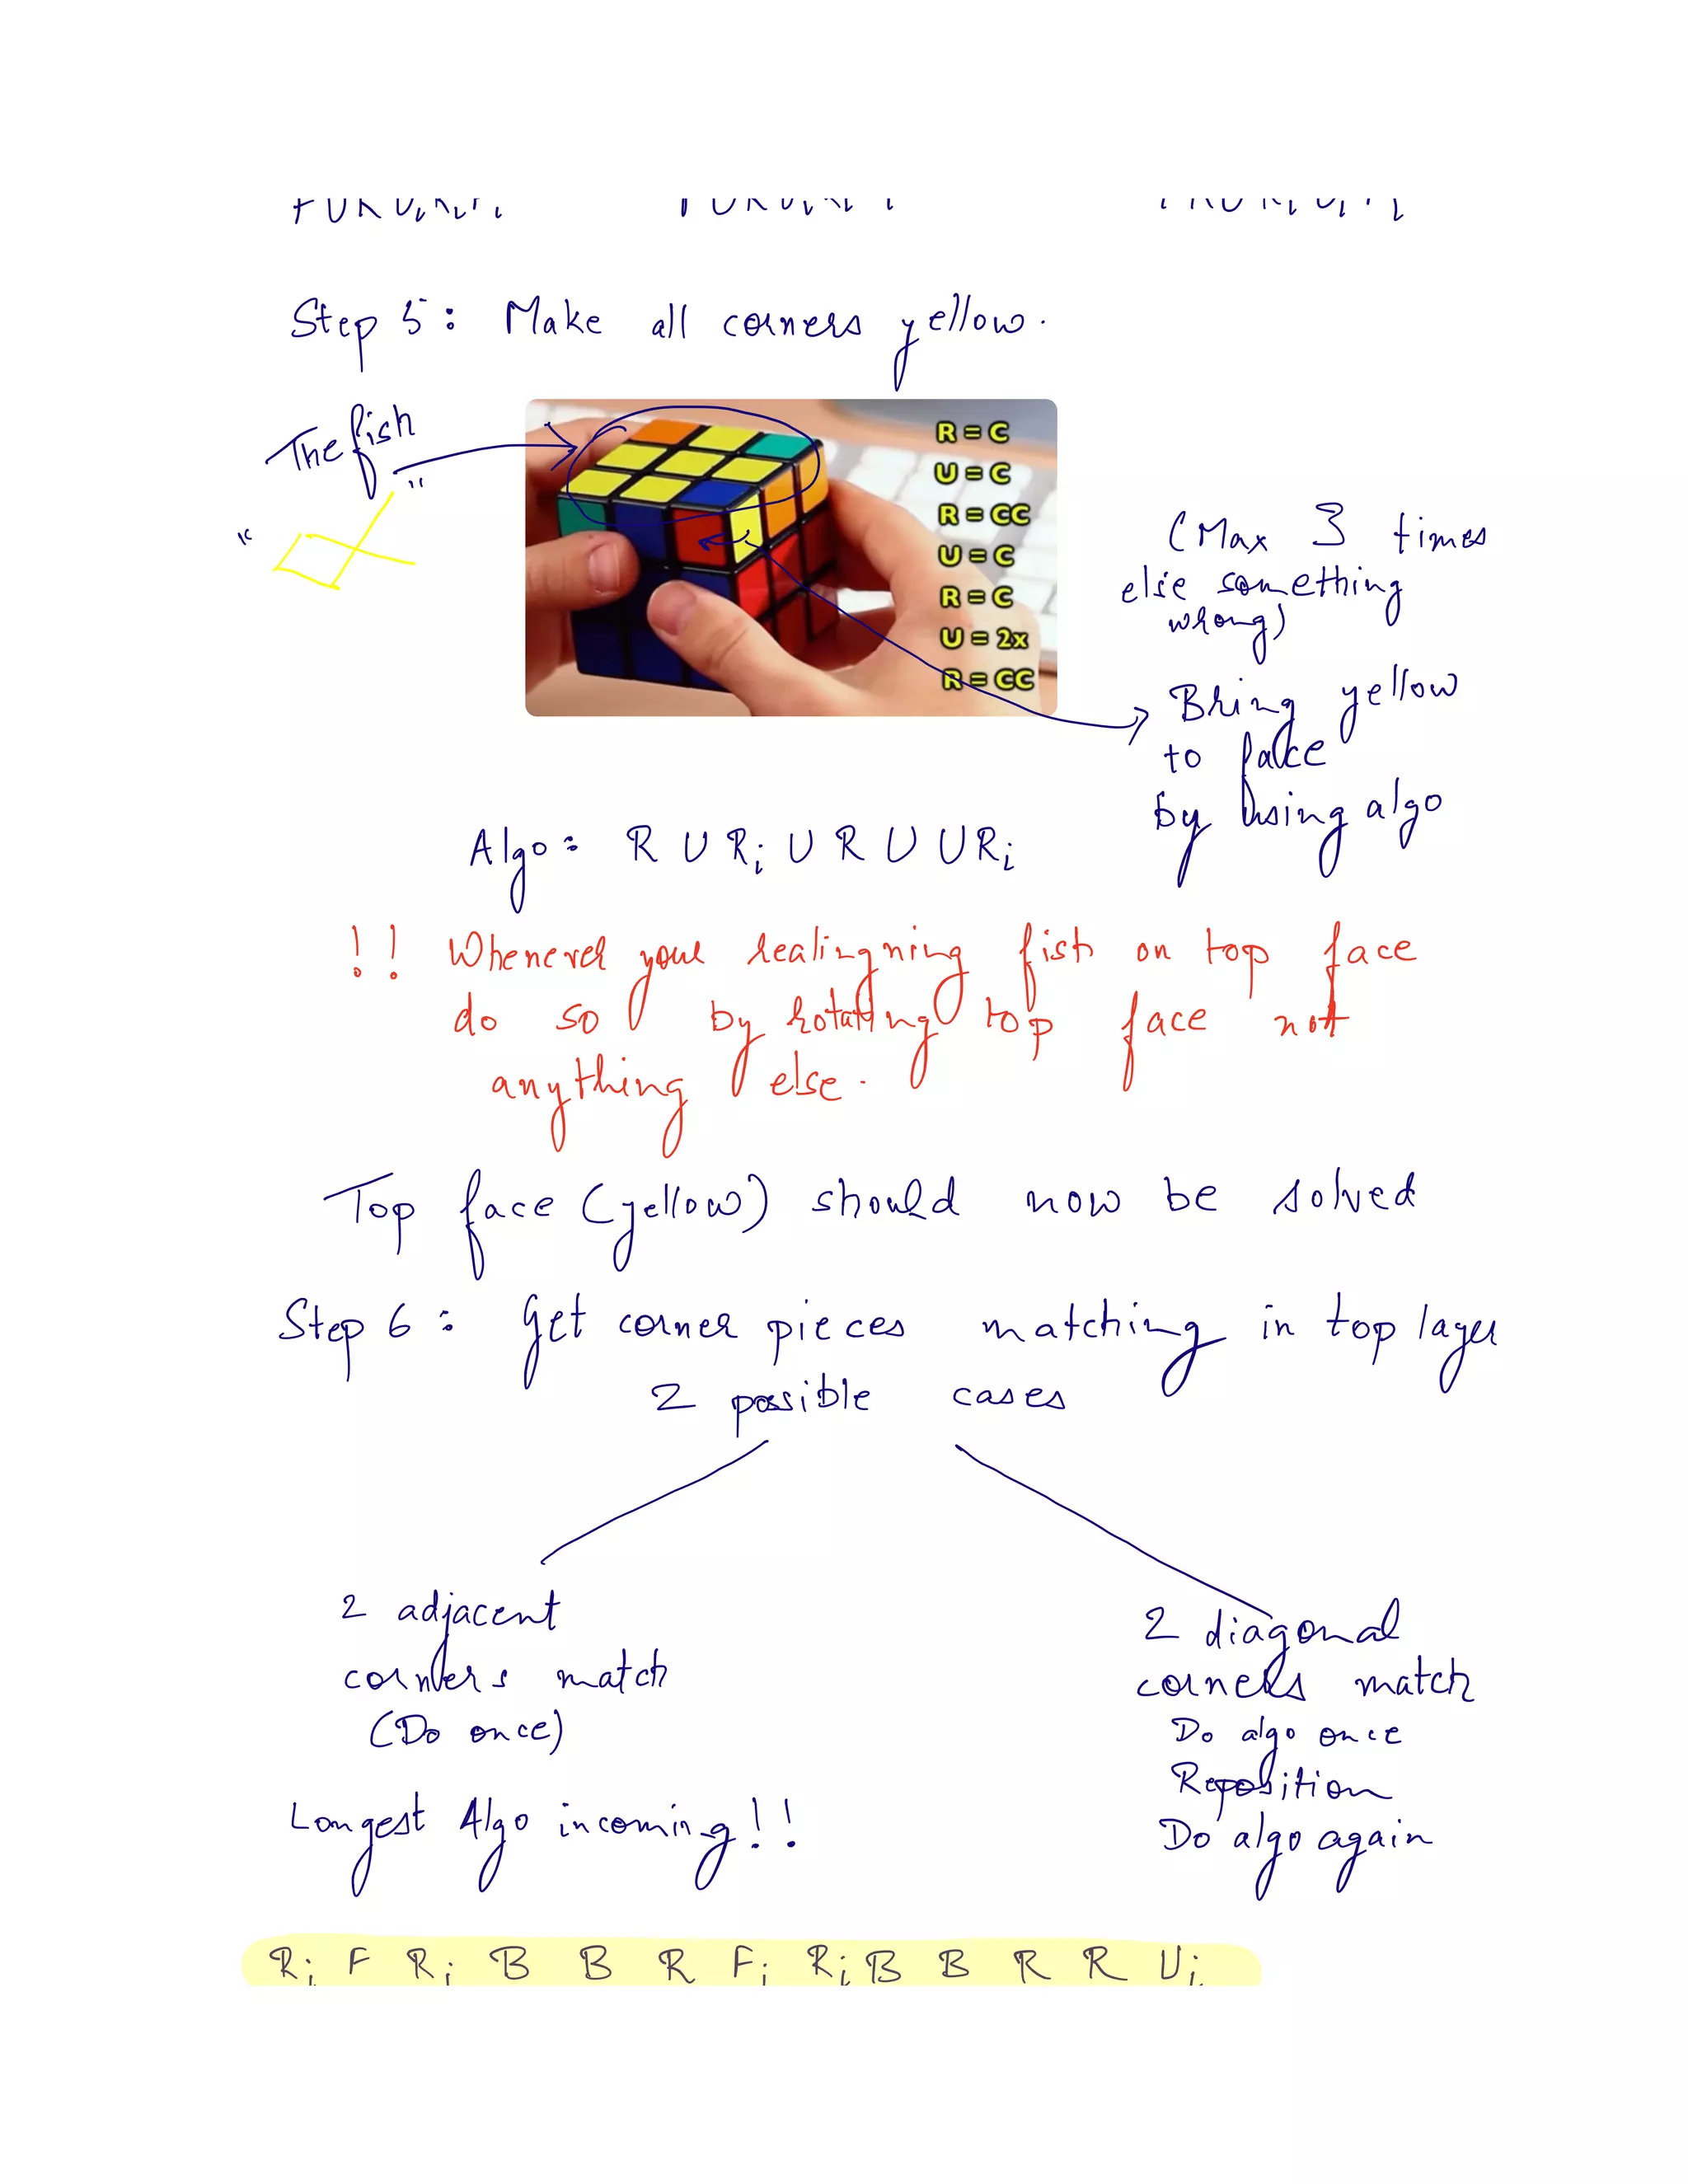 Step 5: Make all corners yellow.
The fish
" "
R = C
U = C
R = CC
U = C
R = C
U = 2x
R = CC
(Max 3 times
else something
wrong)
Bring yellow
to face
by using algo
Algo: R U Ri U R U U Ri
!! Whenever your realingning fish on top face
do so by rotating top face not
anything else.
Top face (yellow) should now be solved
Step 6: Get corner pieces matching in top layer
2 possible cases
2 adjacent
corners match
(Do once)
2 diagonal
corners match
Do algo once
Reposition
Do algo again
Longest Algo incoming!!
Ri F Ri B B R Fi Ri B B R R Ui